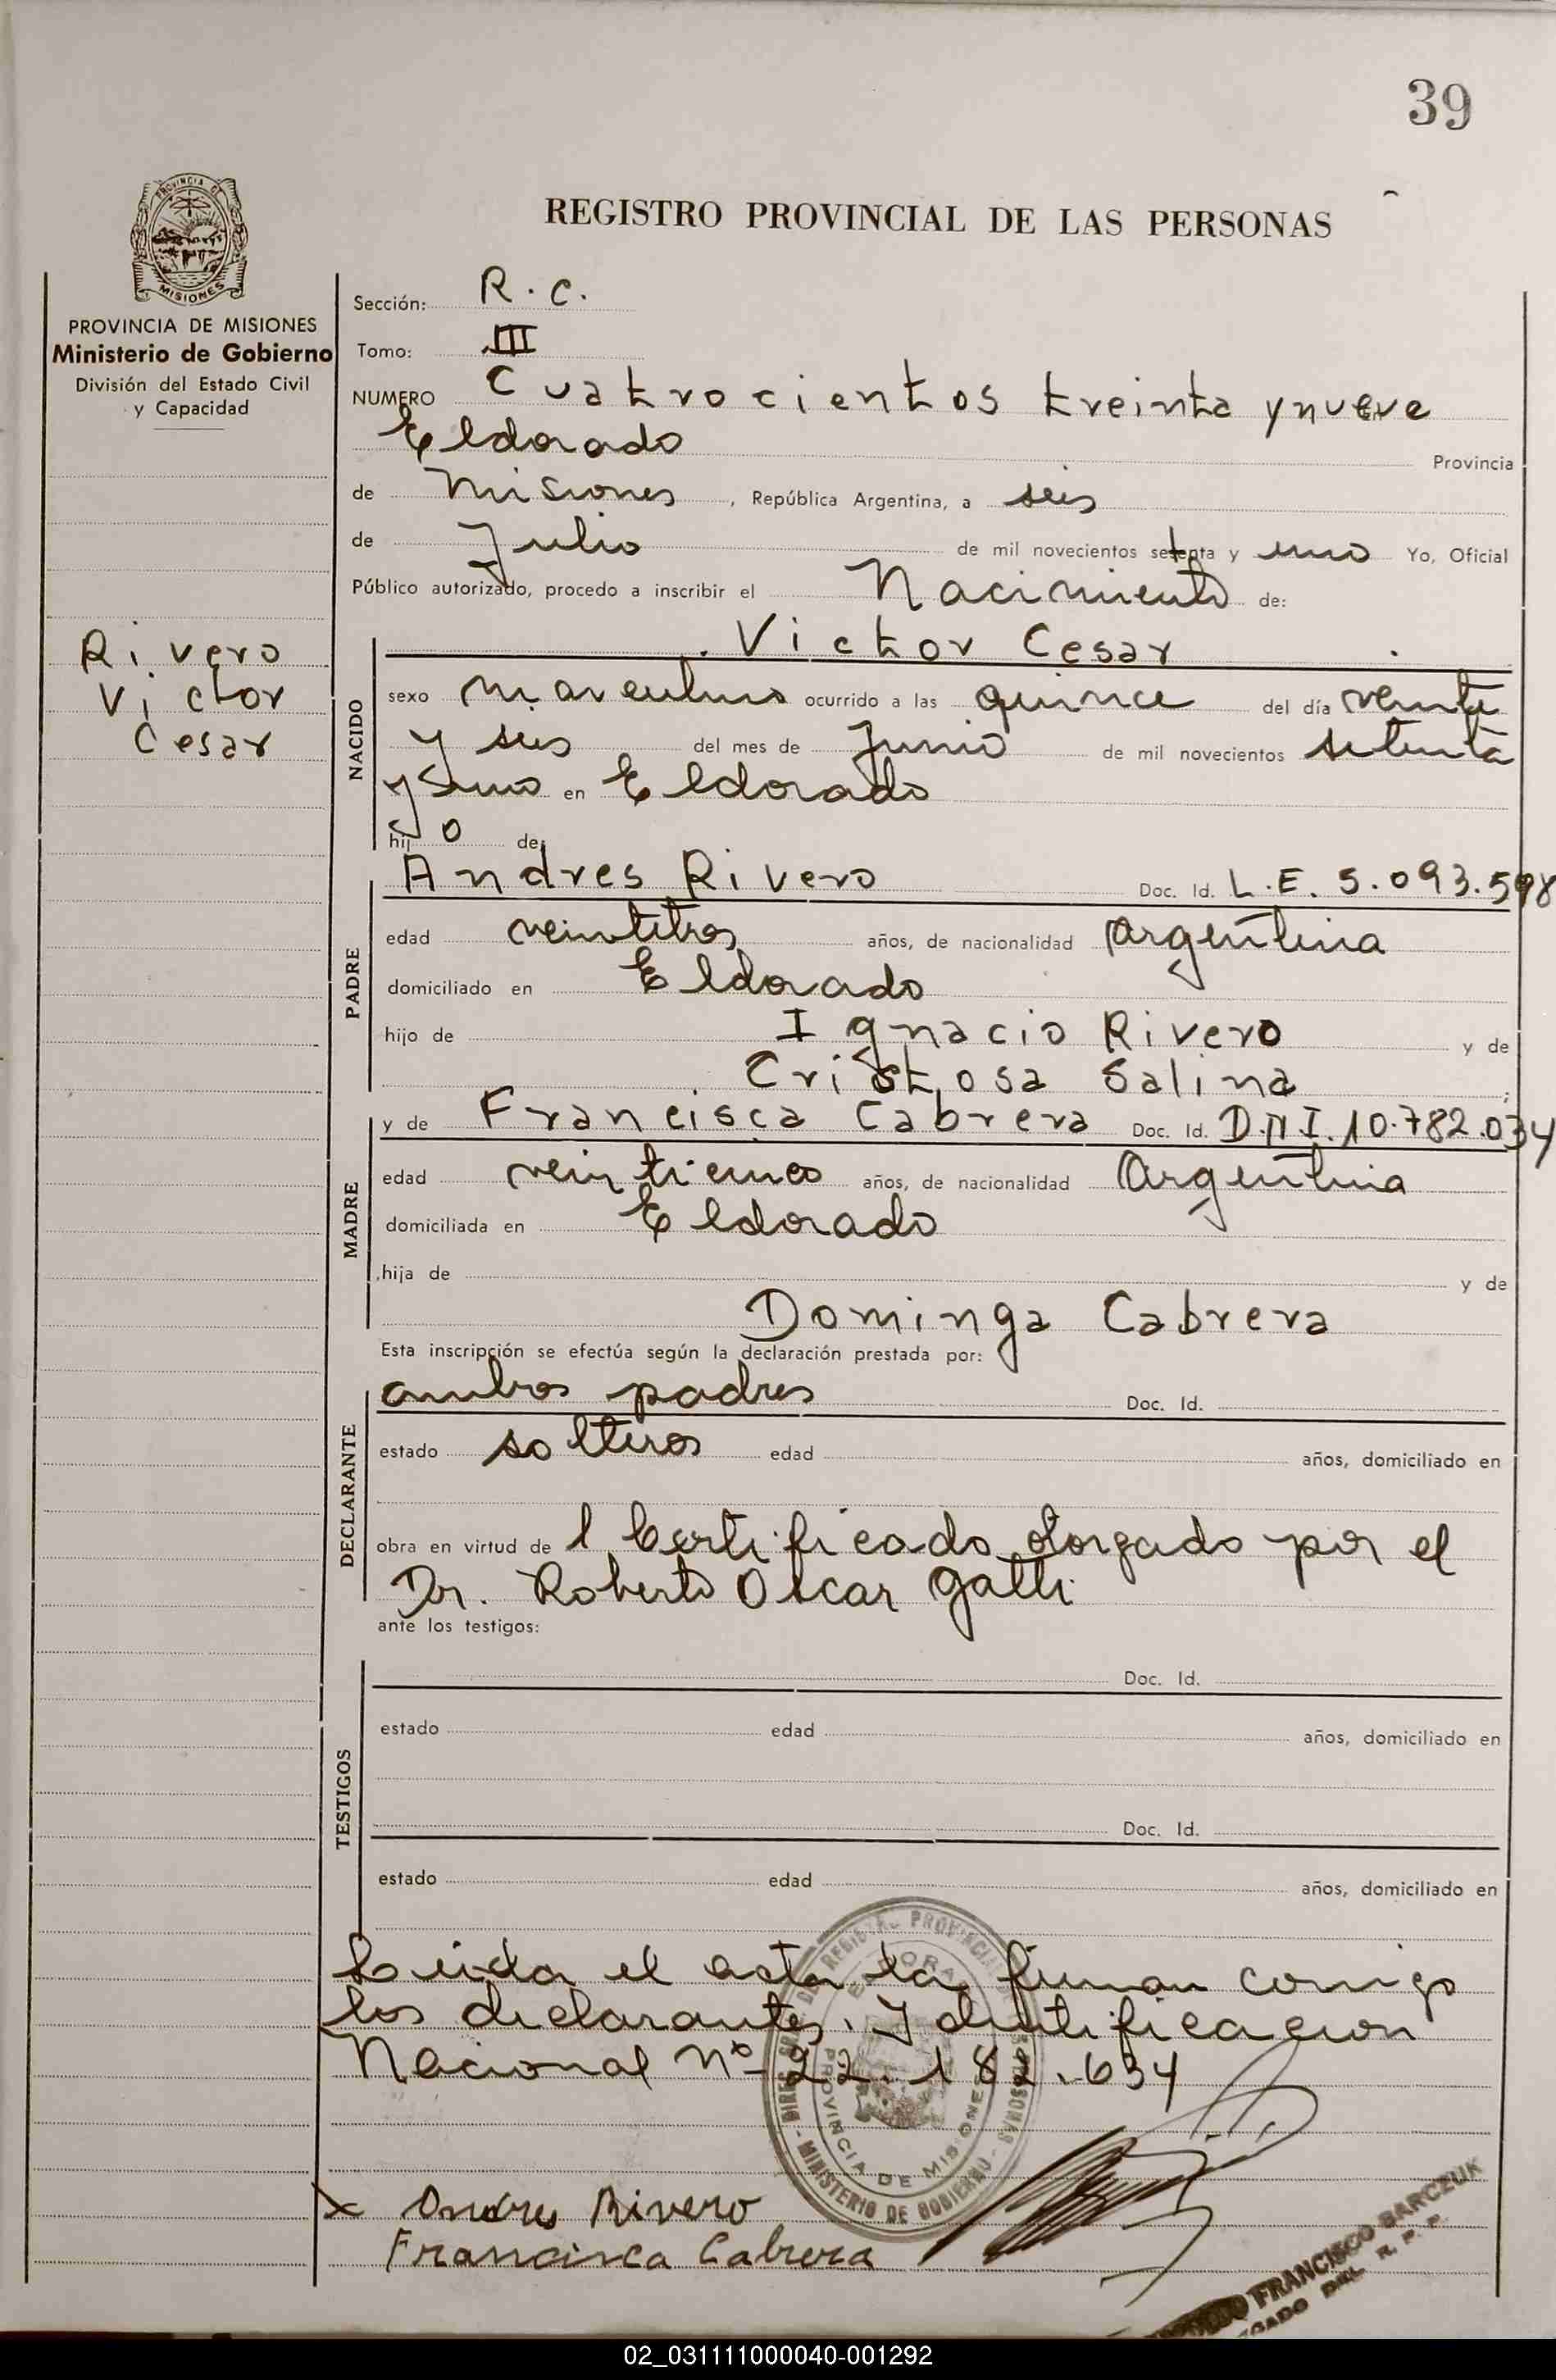 39
PROVINCIA DE
MISIONES
REGISTRO PROVINCIAL DE LAS PERSONAS
PROVINCIA DE MISIONES
Ministerio de Gobierno
División del Estado Civil
y Capacidad
Rivero
Victor
Cesar
Sección: R. C.
Tomo: III
NUMERO Cuatrocientos treinta y nueve
Eldorado Provincia
de Misiones, República Argentina, a seis
de Julio de mil novecientos setenta y uno Yo, Oficial
Público autorizado, procedo a inscribir el Nacimiento de:
NACIDO
Victor Cesar
sexo masculino ocurrido a las quince del día veinte
y seis del mes de Junio de mil novecientos setenta
y uno en Eldorado
hijo de:
PADRE
Andres Rivero Doc. Id. L.E. 5.093.598
edad veintitres años, de nacionalidad Argentina
domiciliado en Eldorado
hijo de Ignacio Rivero y de
Salina;
MADRE
y de Francisca Cabrera Doc. Id. D.N.I. 10.782.034
edad años, de nacionalidad Argentina
domiciliada en Eldorado
hija de y de
Dominga Cabrera
Esta inscripción se efectúa según la declaración prestada por:
DECLARANTE
ambos padres Doc. Id.
estado solteros edad años, domiciliado en
obra en virtud de l Certificado otorgado por el
Dr. Roberto Oscar Gatti
ante los testigos:
TESTIGOS
Doc. Id.
estado edad años, domiciliado en
Doc. Id.
estado edad años, domiciliado en
Leida el acta la firman conmigo
los declarantes. Identificacion
Nacional Nº 22.182.634
PROVINCIA DE MISIONES
MINISTERIO DE GOBIERNO
x Andres Rivero
Francisca Cabrera
FRANCISCO BARCZUK
DEL R. P. P.
02_031111000040-001292